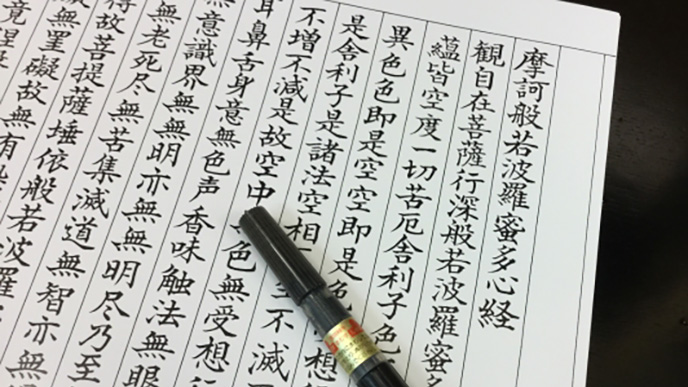 摩訶般若波羅蜜多心経
観自在菩薩行深般若波羅蜜多
蘊皆空度一切苦厄舎利子色
異色色即是空空即是色想
是舎利子是諸法空相不滅
不増不減是故空中色無受想行
耳鼻舌身意無色声香味触法無眼
無意識界無無明亦無無明尽乃至
無老死尽無苦集滅道無智亦無
得故菩提薩埵依般若波羅
無罣礙故無有
竟涅